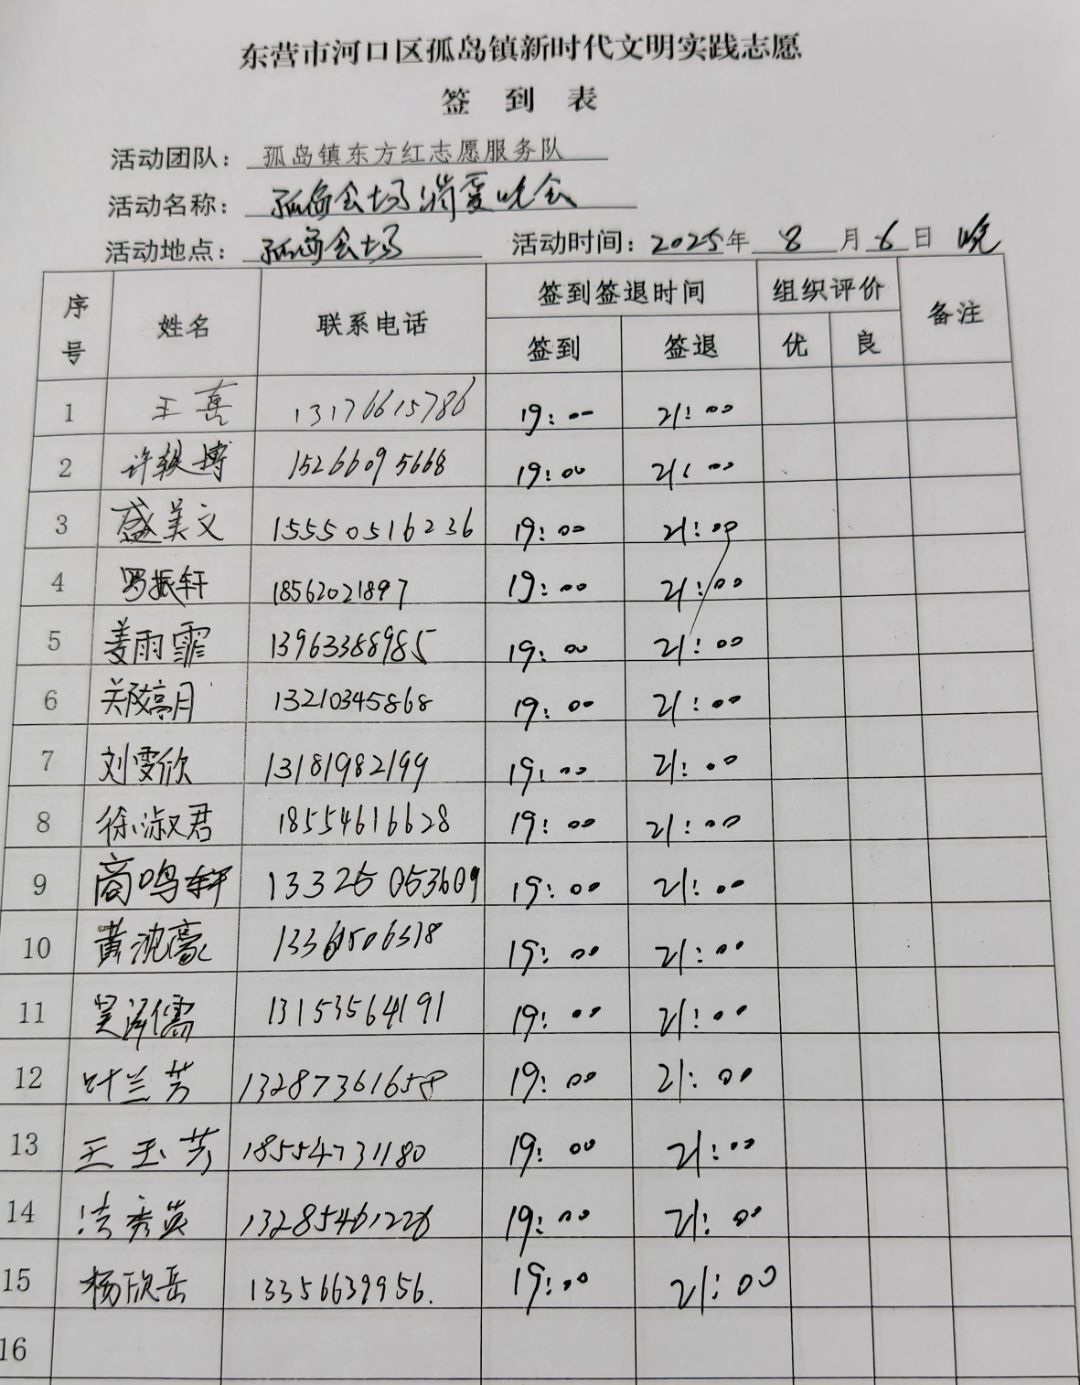 东营市河口区孤岛镇新时代文明实践志愿
签 到 表
活动团队：孤岛镇东方红志愿服务队
活动名称：孤岛会场消夏晚会
活动地点：孤岛会场 活动时间：2025年 8 月 6 日 晚
序号 姓名 联系电话 签到签退时间 组织评价 备注
签到 签退 优 良
1 王喜 13176615786 19:00 21:00
2 许轶博 15266095668 19:00 21:00
3 盛美文 15550516236 19:00 21:00
4 罗振轩 18562021897 19:00 21:00
5 姜雨霏 13963358985 19:00 21:00
6 郑皓月 13210345868 19:00 21:00
7 刘雯欣 13181982199 19:00 21:00
8 徐淑君 18554616628 19:00 21:00
9 商鸣轩 13325053609 19:00 21:00
10 黄沈豪 19:00 21:00
11 吴泽儒 13153564191 19:00 21:00
12 叶兰芳 13287361658 19:00 21:00
13 王玉芳 18554731180 19:00 21:00
14 秀英 13285461226 19:00 21:00
15 杨欣岳 13356639956. 19:00 21:00
16